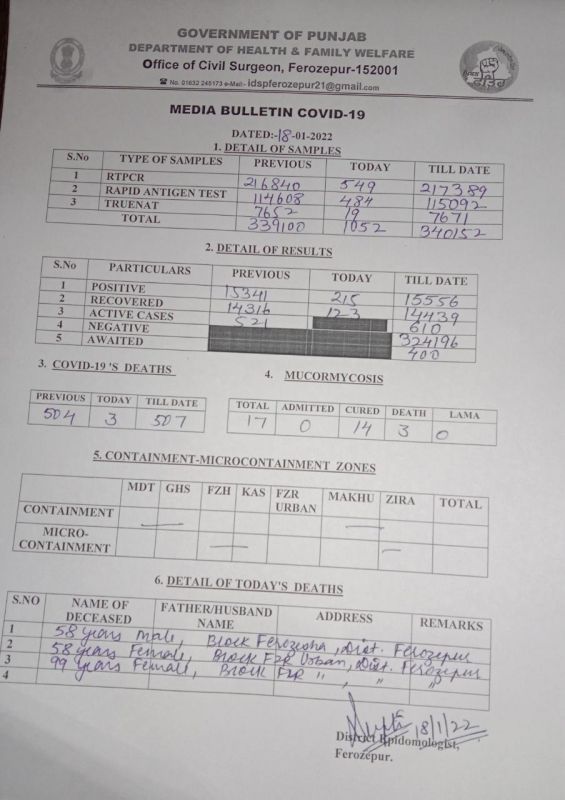 GOVERNMENT OF PUNJAB
DEPARTMENT OF HEALTH & FAMILY WELFARE
Office of Civil Surgeon, Ferozepur-152001
☎ No. 01632 245173 e-Mail:- idspferozepur21@gmail.com
MEDIA BULLETIN COVID-19
DATED:-18-01-2022
1. DETAIL OF SAMPLES
S.No TYPE OF SAMPLES PREVIOUS TODAY TILL DATE
1 RTPCR 216840 549 217389
2 RAPID ANTIGEN TEST 114608 484 115092
3 TRUENAT 7652 19 7671
TOTAL 339100 1052 340152
2. DETAIL OF RESULTS
S.No PARTICULARS PREVIOUS TODAY TILL DATE
1 POSITIVE 15341 215 15556
2 RECOVERED 14316 123 14439
3 ACTIVE CASES 521 610
4 NEGATIVE 324196
5 AWAITED 400
3. COVID-19 'S DEATHS
PREVIOUS TODAY TILL DATE
504 3 507
4. MUCORMYCOSIS
TOTAL ADMITTED CURED DEATH LAMA
17 0 14 3 0
5. CONTAINMENT-MICROCONTAINMENT ZONES
MDT GHS FZH KAS FZR URBAN MAKHU ZIRA TOTAL
CONTAINMENT
MICRO-
CONTAINMENT
6. DETAIL OF TODAY'S DEATHS
S.NO NAME OF DECEASED FATHER/HUSBAND NAME ADDRESS REMARKS
1 58 years male, Block Ferozesha, Dist. Ferozepur
2 58 years Female, Block FZR Urban, Dist. Ferozepur
3 99 years Female, Block FZR " , " "
4
18/1/22
District Epidomologist,
Ferozepur.